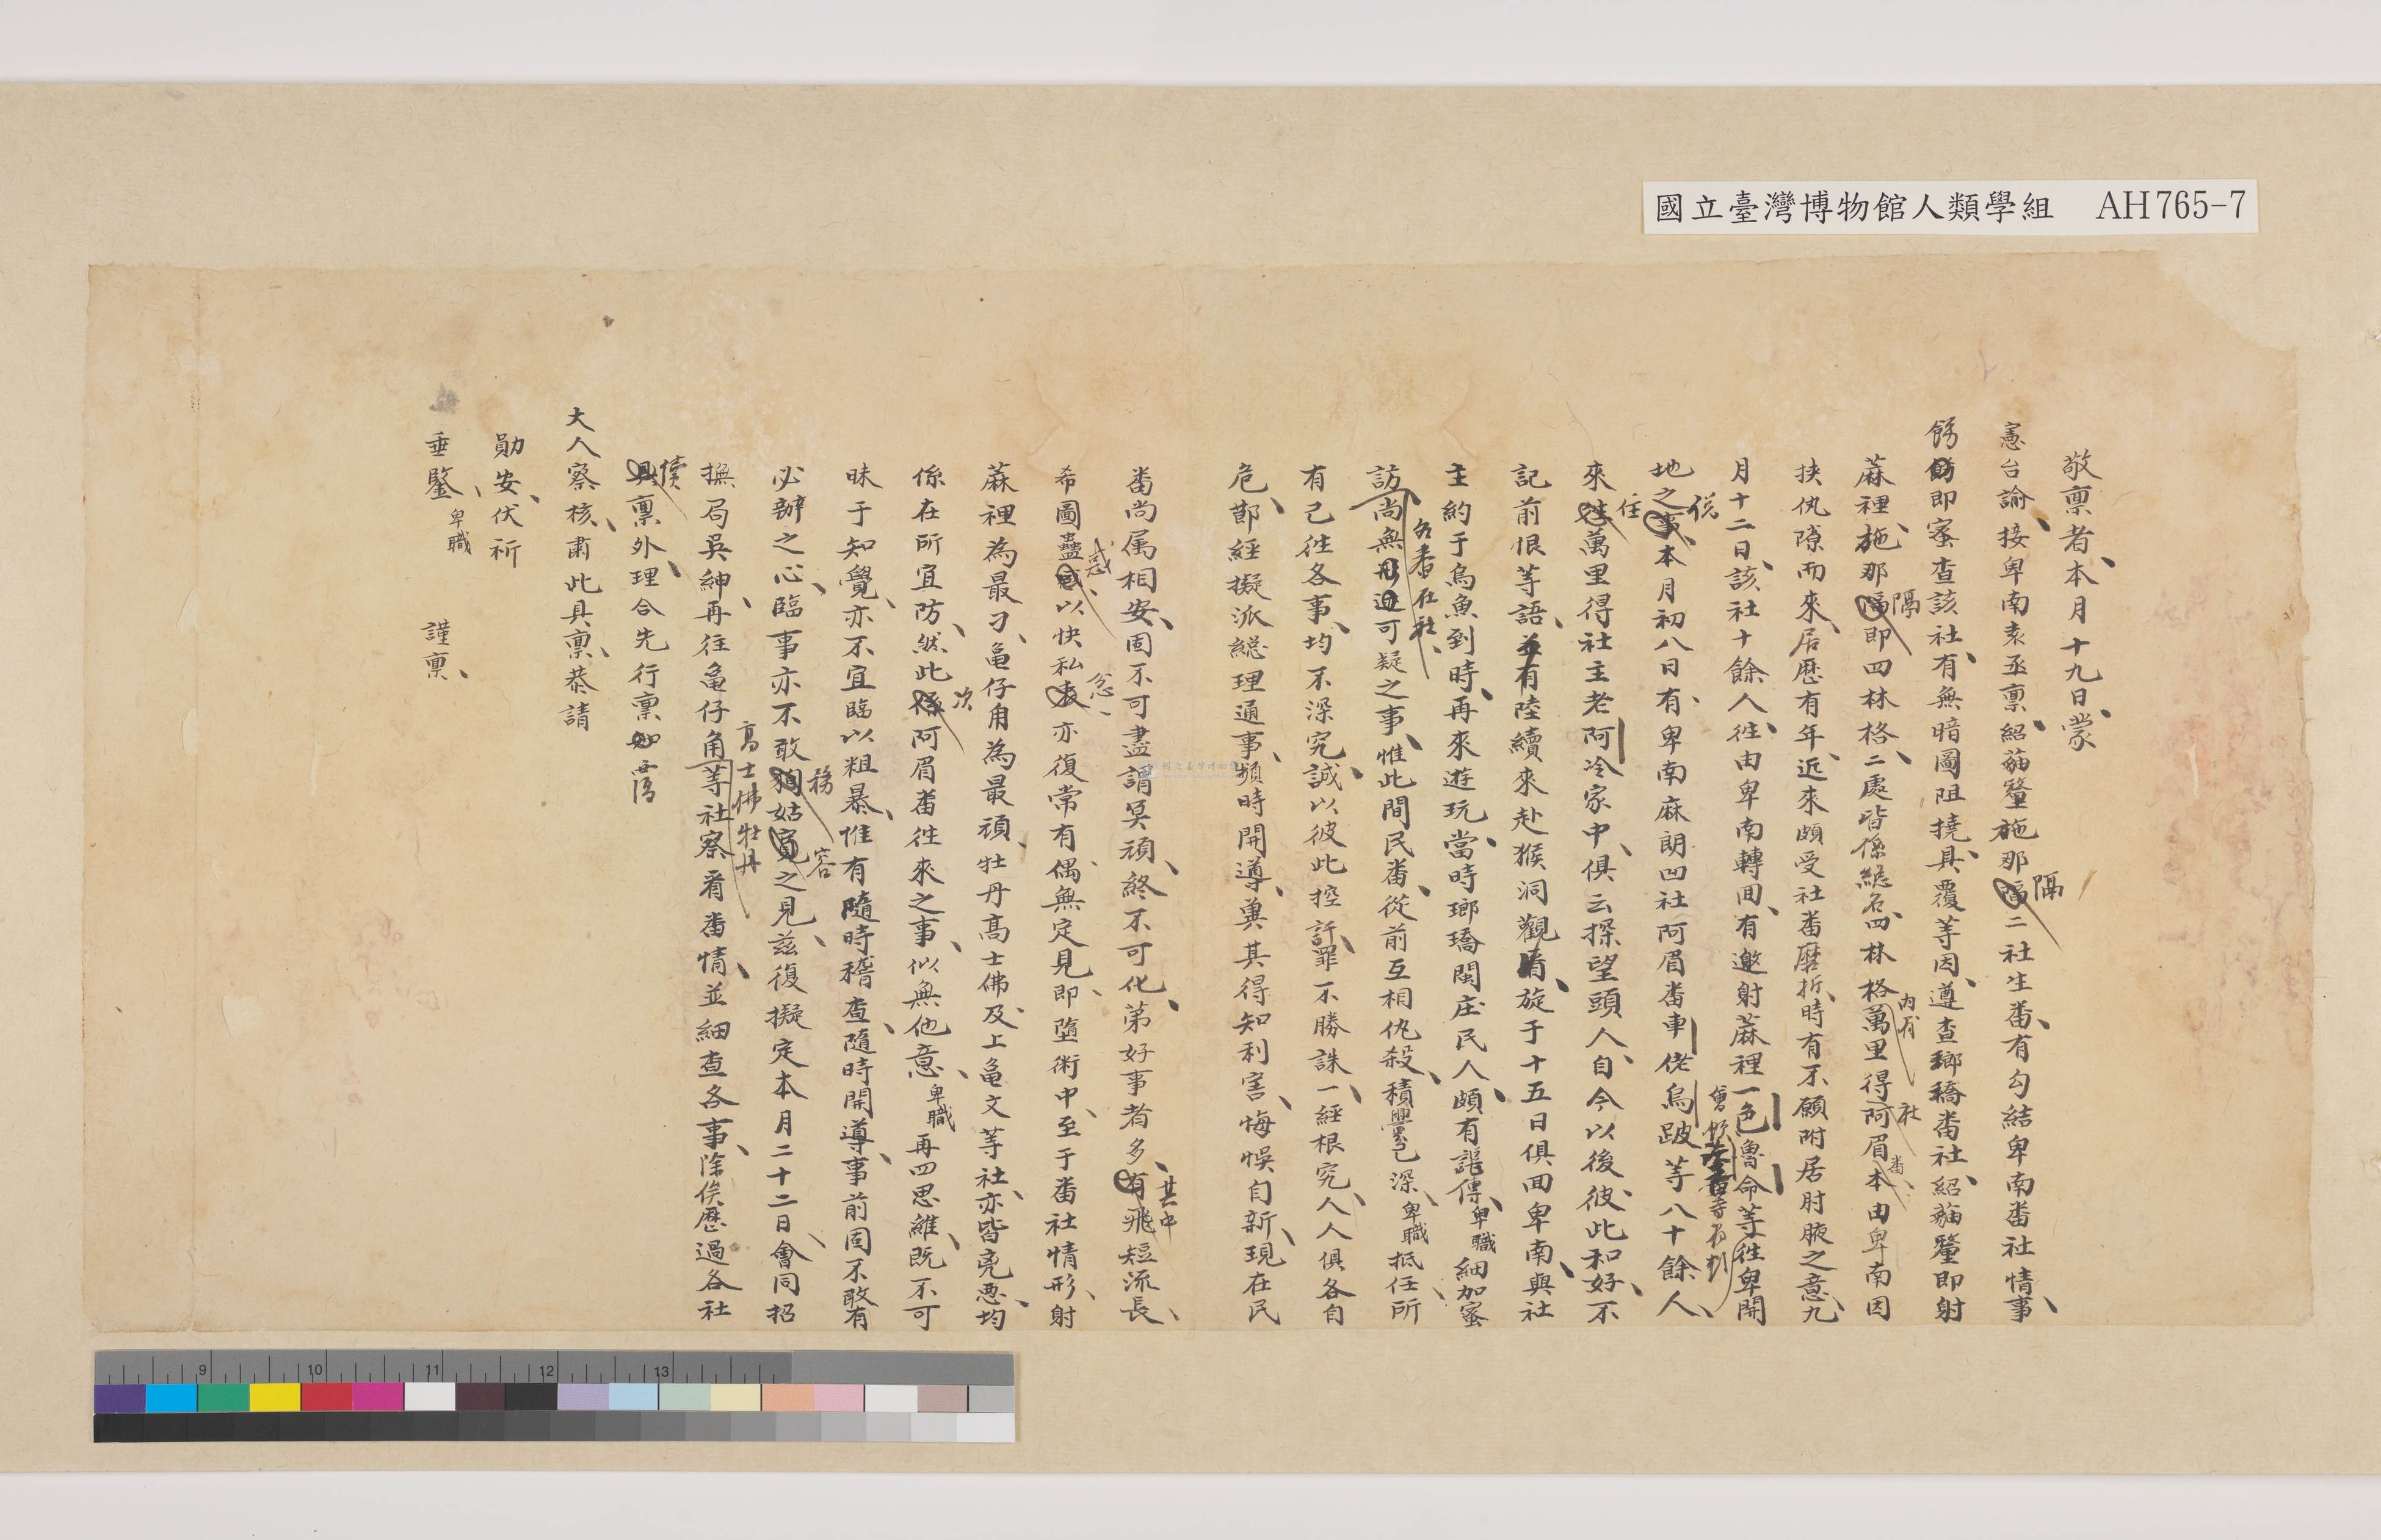 國立臺灣博物館人類學組 AH765-7
敬稟者、本月十九日、蒙
憲台諭、接卑南袁丞稟、紹蘊釐施那隔二社生番、有勾結卑南番社情事、
飭即密查該社、有無暗圖阻撓、具覆等因、遵查瑯嶠番社、紹蘊釐即射
蔴裡、施那隔即四林格、二處皆係總名、四林格內有萬里得社阿眉番、本由卑南因
挾仇隙而來、居歷有年、近來頗受社番磨折、時有不願附居肘腋之意、九
月十二日、該社十餘人、往由卑南轉回、有邀射蔴裡一色魯命等往卑開
地之說、本月初八日、有卑南麻朗凹社阿眉番車佬烏跛等八十餘人、
來住萬里得社主老阿冷家中、俱云探望頭人、自今以後、彼此和好、不
記前恨等語、並有陸續來赴猴洞觀看、旋于十五日俱回卑南、與社
主約于烏魚到時、再來遊玩、當時瑯嶠閩庄民人、頗有謠傳、卑職細加密
訪、各番在社、尚無可疑之事、惟此間民番、從前互相仇殺、積釁已深、卑職抵任所
有已往各事、均不深究、誠以彼此控訐、罪不勝誅、一經根究、人人俱各自
危、節經擬派總理通事、頻時開導、冀其得知利害、悔悞自新、現在民
番尚属相安、固不可盡謂冥頑、終不可化、第好事者多、其中飛短流長、
希圖蠱惑、以快私忿、亦復常有、偶無定見、即墮術中、至于番社情形、射
蔴裡為最刁、龜仔甪為最頑、牡丹高士佛及上龜文等社、亦皆亮悪、均
係在所宜防、然此次阿眉番往來之事、似無他意、卑職再四思維、既不可
昧于知覺、亦不宜臨以粗暴、惟有隨時稽查、隨時開導、事前固不敢有
必辦之心、臨事亦不敢務姑容之見、茲復擬定本月二十二日、會同招
撫局吳紳、再往龜仔角高士佛牡丹等社察看番情、並細查各事、除俟歷過各社
續稟外、理合先行稟
大人察核、肅此具稟、恭請
勛安、伏祈
垂鑒、卑職 謹稟、